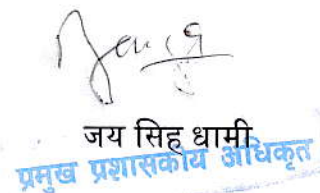 जय सिंह धामी
प्रमुख प्रशासकीय अधिकृत